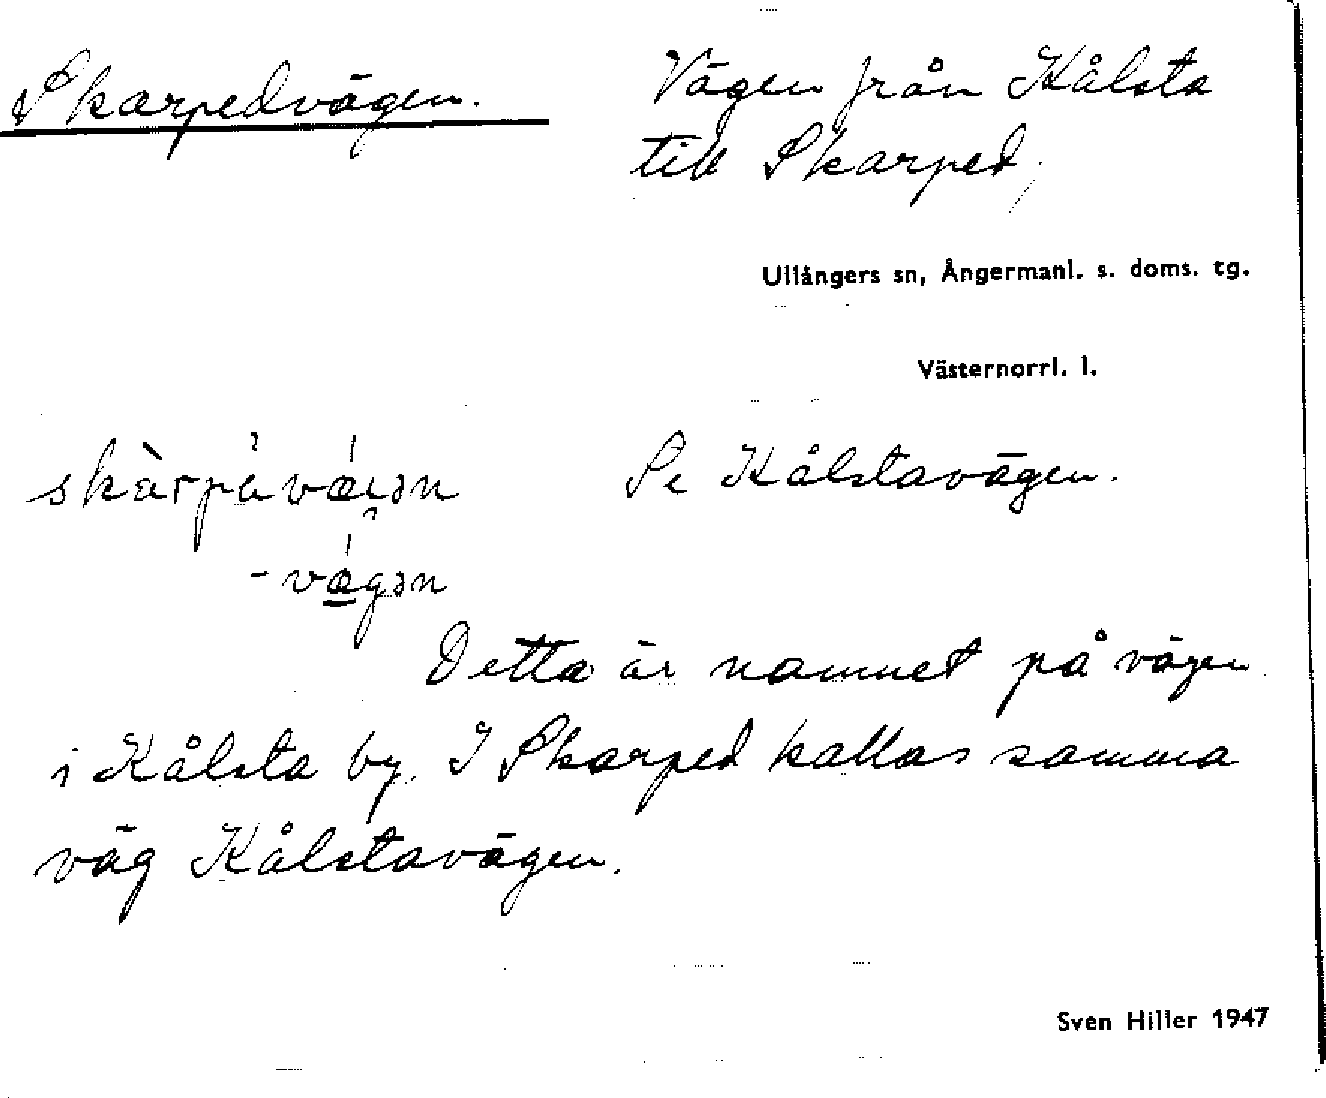 Skarpedvägen.
Vägen från Kålsta
till Skarped,
Ullångers sn, Ångermanl. s. doms. tg.
Västernorrl. l.
Se Kålstavägen.
Detta är namnet på vägen
i Kålsta by. I Skarped kallas samma
väg Kålstavägen.
Sven Hiller 1947